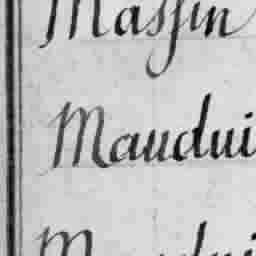 Massin
Maudui